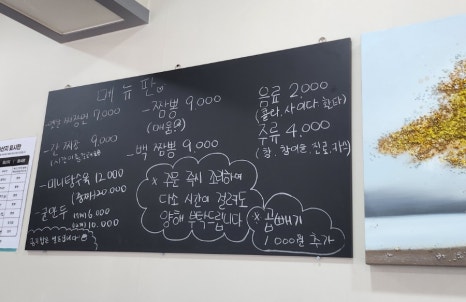 메뉴판
- 옛날 짜장면 7,000
- 간짜장 9,000
- 미니탕수육 12,000
- 군만두 6,000
10,000
- 짬뽕 9,000
(매움)
- 백짬뽕 9,000
음료 2,000
(콜라, 사이다, 환타)
주류 4,000
(참, 참이슬, 진로, 카스)
※ 주문 즉시 조리하여
다소 시간이 걸려도
양해 부탁드립니다
※ 곱빼기
1,000원 추가